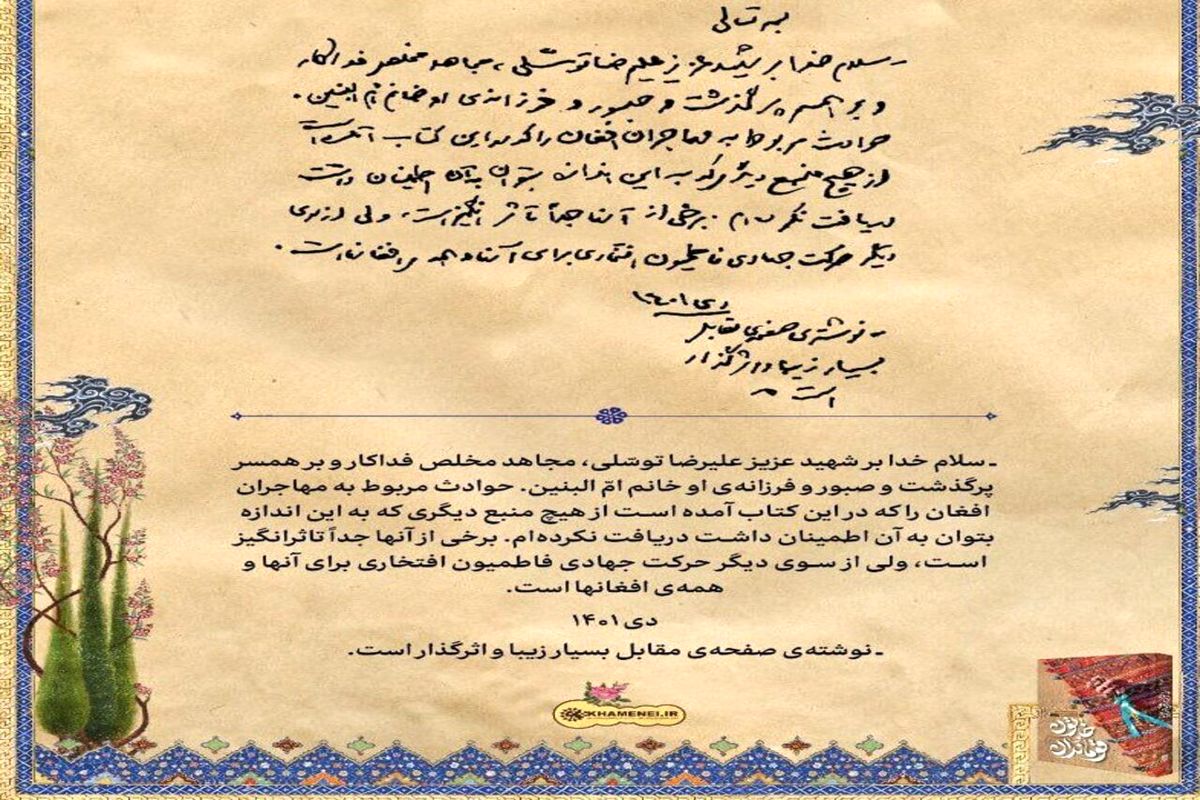 بسمه تعالی
ـ سلام خدا بر شهید عزیز علیرضا توسّلی، مجاهد مخلص فداکار
و بر همسر پرگذشت و صبور و فرزانه‌ی او خانم امّ البنین.
حوادث مربوط به مهاجران افغان را که در این کتاب آمده است
از هیچ منبع دیگری که به این اندازه بتوان به آن اطمینان داشت
دریافت نکرده‌ام. برخی از آنها جداً تأثرانگیز است، ولی از سوی
دیگر حرکت جهادی فاطمیون افتخاری برای آنها و همه‌ی افغانها است.
دی ۱۴۰۱
ـ نوشته‌ی صفحه‌ی مقابل
بسیار زیبا و اثرگذار
است
ـ سلام خدا بر شهید عزیز علیرضا توسّلی، مجاهد مخلص فداکار و بر همسر
پرگذشت و صبور و فرزانه‌ی او خانم امّ البنین. حوادث مربوط به مهاجران
افغان را که در این کتاب آمده است از هیچ منبع دیگری که به این اندازه
بتوان به آن اطمینان داشت دریافت نکرده‌ام. برخی از آنها جداً تاثرانگیز
است، ولی از سوی دیگر حرکت جهادی فاطمیون افتخاری برای آنها و
همه‌ی افغانها است.
دی ۱۴۰۱
ـ نوشته‌ی صفحه‌ی مقابل بسیار زیبا و اثرگذار است.
KHAMENEI.IR
خاتون
قوماندان